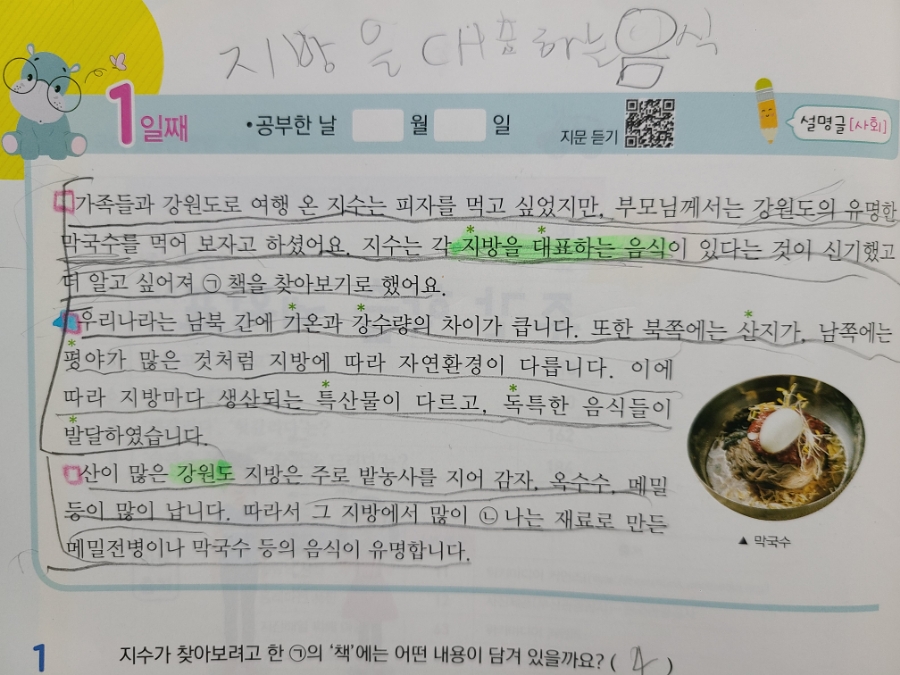 지방을 대표하는 음식
1일째
•공부한 날 월 일
지문 듣기
설명글[사회]
가족들과 강원도로 여행 온 지수는 피자를 먹고 싶었지만, 부모님께서는 강원도의 유명한
막국수를 먹어 보자고 하셨어요. 지수는 각 지방을 대표하는 음식이 있다는 것이 신기했고
더 알고 싶어져 ㉠ 책을 찾아보기로 했어요.
우리나라는 남북 간에 기온과 강수량의 차이가 큽니다. 또한 북쪽에는 산지가, 남쪽에는
평야가 많은 것처럼 지방에 따라 자연환경이 다릅니다. 이에
따라 지방마다 생산되는 특산물이 다르고, 독특한 음식들이
발달하였습니다.
산이 많은 강원도 지방은 주로 밭농사를 지어 감자, 옥수수, 메밀
등이 많이 납니다. 따라서 그 지방에서 많이 ㉡ 나는 재료로 만든
메밀전병이나 막국수 등의 음식이 유명합니다.
▲ 막국수
1 지수가 찾아보려고 한 ㉠의 ‘책’에는 어떤 내용이 담겨 있을까요? ( 4 )